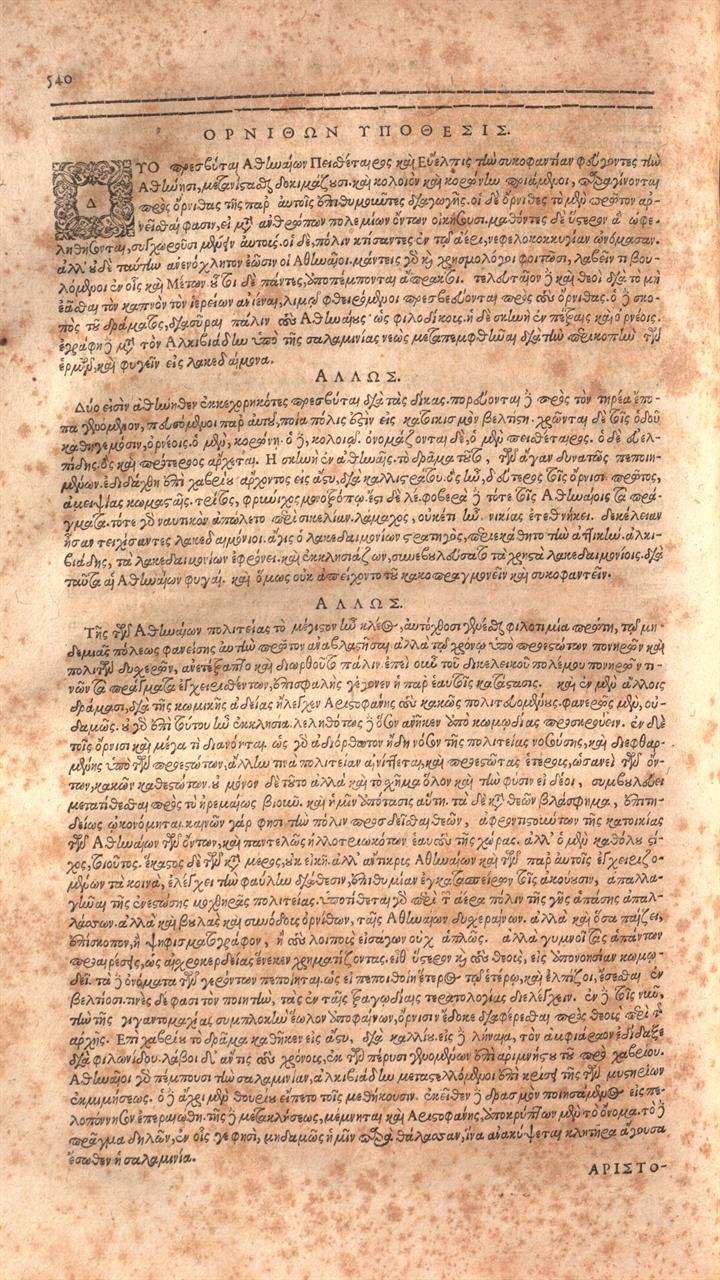 540
ΟΡΝΙΘΩΝ ΥΠΟΘΕΣΙΣ.
ΔΥΟ πρεσβύται Αθηναίων Πειθέταιρος καὶ Εὔελπις τὴν συκοφαντίαν φεύγοντες τὴν
Αθήνησι, μετανίστασθαι δοκιμάζουσι. καὶ κολοιὸν καὶ κορώνην πριάμενοι, παραγίνονται
πρὸς ὄρνιθας τῆς παρ' αὐτοῖς ἐπιθυμοιῦτες διαγωγῆς. οἱ δὲ ὄρνιθες τὸ μὲν πρῶτον αρ-
νεῖσθαί φασιν, εἰ μετ' ανθρώπων πολεμίων ὄντων οἰκήσουσι. μαθόντες δὲ ὕστερον ἃ ὠφε-
ληθήσονται, συγχωροῦσι μένειν αὐτοῖς. οἱ δὲ, πόλιν κτίσαντες ἐν τῷ ἀέρι, νεφελοκοκκυγίαν ὠνόμασαν.
ἀλλ' οὐδὲ ταύτην ανενόχλητον ἐῶσιν οἱ Αθηναῖοι. μάντεις γὰρ καὶ χρησμολόγοι φοιτῶσι, λαβεῖν τι βου-
λόμενοι ἐν οἷς καὶ Μέτων. οὗτοι δὲ πάντες, ὑποπέμπονται ἄπρακτοι. τελευταῖον δὲ καὶ θεοὶ διὰ τὸ μὴ
ἐᾶσθαι τὸν καπνὸν τὸν ἱερείων ανιέναι, λιμῷ φθειρόμενοι πρεσβεύονται πρὸς τοὺς ὄρνιθας. ὁ δὲ σκο-
πὸς τοῦ δράματος, διασῦραι πάλιν τοὺς Αθηναίους ὡς φιλοδίκοις. ἡ δὲ σκηνὴ ἐν πέτραις καὶ ὀρνέοις.
ἐγράφη δὲ μετὰ τὸν Αλκιβιάδην ὑπὸ τῆς σαλαμινίας νεὼς μεταπεμφθῆναι διὰ τὴν περικοπὴν τῶν
ἑρμῶν, καὶ φυγεῖν εἰς λακεδαίμονα.
ΑΛΛΩΣ.
Δύο εἰσὶν αθήνηθεν ἐκκεχορηκότες πρεσβῦται διὰ τὰς δίκας. πορεύονται δὲ πρὸς τὸν τηρέα ἔπο-
πα γενόμενον, πευσόμενοι παρ αυτοῦ, ποία πόλις ἐστὶν εἰς κατοικισμὸν βελτίστη. χρῶνται δὲ τῆς ὁδοῦ
καθηγεμόσιν, ὀρνέοις. ὁ μὲν, κορώνῃ. ὁ δὲ, κολοιῷ. ὀνομάζονται δὲ, ὁ μὲν πειθέταιρος. ὁ δὲ εὐελ-
πίδης. ὃς καὶ πρότερος αρχεται. Η σκηνὴ ἐν αθήναις. τὸ δρᾶμα τοῦτο, τῶν ἄγαν δυνατῶς πεποιη-
μένων. ἐδιδάχθη ἐπὶ χαβρίου ἄρχοντος εἰς αστυ, διὰ καλλιστράτου. ὃς ἦν, δεύτερος τοῖς ὄρνισι. πρῶτος,
ἀμειψίας κωμασταῖς. τρίτος, φρύνιχος μονοτρόπῳ. ἔστι δὲ λε. φοβερὰ δὲ τότε τοῖς Αθηναίοις τὰ πρά-
γματα. τότε γὰρ ναυτικὸν ἀπώλετο περὶ σικελίαν. λάμαχος, οὐκέτι ἦν. νικίας ἐτεθνήκει. δεκέλειαν
ἦσαν τειχίσαντες λακεδαιμόνιοι. ἄγις ὁ λακεδαιμονίων στρατηγὸς, περιεκάθητο τὴν αττικὴν. αλκι-
βιάδης, τὰ λακεδαιμονίων ἐφρόνει. καὶ ἐκκλησιάζων, συνεβουλεύσατο τὰ χρηστὰ λακεδαιμονίοις. διὰ
ταῦτα αἱ Αθηναίων φυγαί. καὶ ὅμως οὐκ απείχοντο τοῦ κακοπραγμονεῖν καὶ συκοφαντεῖν.
ΑΛΛΩΣ.
Τῆς τῶν Αθηναίων πολιτείας τὸ μέγιστον ἦν κλέος, αὐτόχθοσι γενέσθαι φιλοτιμία πρώτη, τῷ μη-
δεμιᾶς πόλεως φανείσης αυτὴν πρῶτον αναβλαστῆσαι ἀλλὰ τῷ χρόνῳ ὑπὸ προεστώτων πονηρῶν καὶ
πολιτῶν δυχερῶν, ανετέτραπτο καὶ διωρθοῦτο πάλιν. ἐπεὶ οὖν τοῦ δικελεικοῦ πολέμου πονηρῶν τι-
νῶν τὰ πράγματα ἐγχειριθέντων, ἐπισφαλὴς γέγονεν ἡ παρ ἑαυτοῖς κατάστασις. καὶ ἐν μὲν ἄλλοις
δράμασι, διὰ τῆς κωμικῆς ἀδείας ἤλεγχεν Αριστοφάνης τοὺς κακῶς πολιτευομένους. φανερῶς μὲν, οὐ-
δαμῶς. οὐ γὰρ ἐπὶ τούτου ἦν ἐκκλησία. λεληθότως δὲ ὅσον ανῆκεν ὑπὸ κωμῳδίας προσκρούειν. ἐν δὲ
τοῖς ὄρνισι καὶ μέγα τὶ διανόνται. ὡς γὰρ ἀδιόρθωτον ἤδη νόσον τῆς πολιτείας νοσούσης, καὶ διεφθαρ-
μένης ὑπὸ τῶν προεστώτων, ἄλλην τινὰ πολιτείαν αἰνίτεται, καὶ προεστῶτας ἑτέρους, ὡσανεὶ τῶν ὄν-
των, κακῶν καθεστώτων. οὐ μόνον δὲ τοῦτο ἀλλὰ καὶ τὸ χῆμα ὅλον καὶ τὴν φύσιν εἰ δέοι, συμβουλεύει
μετατίθεσθαι πρὸς τὸ ἠρεμαίως βιοῦν. καὶ ἡ μὲν ὑπότασις αὕτη. τὰ δὲ κατὰ θεῶν βλάσφημα, ἐπιτη-
δείως ᾠκονόμηται. καινῶν γάρ φησι τὴν πόλιν προσδεῖσθαι θεῶν, ἀφροντιστούντων τῆς κατοικίας
τῶν Αθηναίων τῶν ὄντων, καὶ παντελῶς ἠλλοτριωκότων ἑαυτοὺς τῆς χώρας. ἀλλ' ὁ μὲν καθόλου στό-
χος, τοιοῦτος. ἕκαστος δὲ τῶν κατὰ μέρος, οὐκ εἰκῆ. ἀλλ' αντικρις Αθηναίων καὶ τῶν παρ αὐτοῖς ἐγχειριζο-
μένων τὰ κοινὰ, ἐλέγχει τὴν φαύλην διάθεσιν, ἐπιθυμίαν ἐγκατασπείρων τοῖς ἀκούουσιν, ἀπαλλα-
γῆναι τῆς ἐνεστώσης μοχθηρᾶς πολιτείας. ὑποτίθεται γὰρ περὶ τὸν ἀέρα πόλιν τῆς γῆς ἁπάσης ἀπαλ-
λάσσων. αλλὰ καὶ βουλὰς καὶ συνόδοις ὀρνίθων, ταῖς Αθηναίων δυχεραίνων. ἀλλὰ καὶ ὅσα παίζει,
ἐπίσκοπον, ἢ ψηφισματογράφον, ἢ τοὺς λοιποὺς εἰσάγων οὐχ ἁπλῶς. ἀλλὰ γυμνοῖ τὰς ἁπάντων
προαιρέσεις, ὡς αἰχροκερδείας ἕνεκεν χρηματίζοντας. εἶθ' ὕστερον καὶ τοὺς θεοὺς, εἰς ὑπονοησίαν κωμῳ-
δεῖ. τὰ δὲ ὀνόματα τῶν γερόντων πεποίηται. ὡς εἰ πεποιθοίη ἕτερος τῷ ἑτέρῳ, καὶ ἐλπίζοι, ἔσεσθαι ἐν
βελτίοσι. τινὲς δέ φασι τὸν ποιητὴν, τὰς ἐν ταῖς τραγῳδίαις τερατολογίας διελέγχειν. ἐν δὲ τοῖς νῦν,
τὴν τῆς γιγαντομαχίας συμπλοκὴν ἕωλον ὑποφαίνων, ὄρνισιν ἔδωκε διαφέρεσθαι πρὸς θεοὺς περὶ τῆς
ἀρχῆς. Επὶ χαβρίου τὸ δρᾶμα καθῆκεν εἰς ἄστυ, διὰ καλλίου. εἰς δὲ λήναια, τὸν ἀμφιάραον ἐδίδαξε
διὰ φιλωνίδου. λάβοι δ' ἄν τις τοὺς χρόνοις, ἐκ τῶν πέρυσι γενομένων ἐπὶ αριμνήστου τοῦ πρὸ χαβρίου.
Αθηναῖοι γὰρ πέμπουσι τὴν σαλαμινίαν, αλκιβιάδην μεταστελλόμενοι ἐπὶ κρίσει τῆς τῶν μυστηρίων
ἐκμιμήσεως. ὁ δὲ ἄχρι μὲν θουρίου εἵπετο τοῖς μεθήκουσιν. ἐκεῖθεν δὲ δρασμὸν ποιησάμενος εἰς πε-
λοπόννησον ἐπεραιώθη. τῆς δὲ μετακλήσεως, μέμνηται καὶ Αριστοφάνης, ὑποκρύπτων μὲν τὸ ὄνομα. τὸ δὲ
πρᾶγμα δηλῶν, ἐν οἷς γε φησὶ, μηδαμῶς ἡμῖν παρὰ θάλασσαν, ἵνα ανακύψεται κλητῆρα ἄγουσα
ἕωθεν ἡ σαλαμινία.
ΑΡΙΣΤΟ-